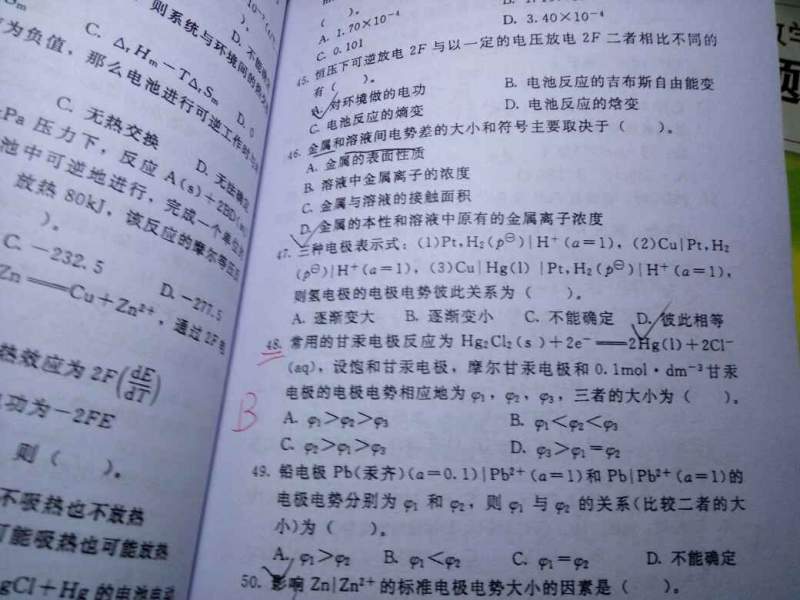 则系统与环境间的热交
D. 不能确定
C. ΔrHm−TΔrSm
D. 0
为负值，那么电池进行可逆工作时与环
C. 无热交换
D. 无法确定
kPa 压力下，反应 A(s)+2BD(
池中可逆地进行，完成一个单位的
放热 80kJ，该反应的摩尔等压
)。
C. −232.5
D. −277.5
Zn══Cu+Zn²⁺，通过 2F 电
热效应为 2F(dE/dT)
功为−2FE
则（ ）。
不吸热也不放热
可能吸热也可能放热
gCl+Hg 的电池电动
( )。
A. 1.70×10⁻⁴
C. 0.101
D. 3.40×10⁻⁴
45. 恒压下可逆放电 2F 与以一定的电压放电 2F 二者相比不同的
有（ ）。
A. 对环境做的电功
B. 电池反应的吉布斯自由能变
C. 电池反应的熵变
D. 电池反应的焓变
46. 金属和溶液间电势差的大小和符号主要取决于（ ）。
A. 金属的表面性质
B. 溶液中金属离子的浓度
C. 金属与溶液的接触面积
D. 金属的本性和溶液中原有的金属离子浓度
47. 三种电极表示式：(1)Pt,H₂(p⊖)|H⁺(a=1)，(2)Cu|Pt,H₂
(p⊖)|H⁺(a=1)，(3)Cu|Hg(l)|Pt,H₂(p⊖)|H⁺(a=1)，
则氢电极的电极电势彼此关系为（ ）。
A. 逐渐变大 B. 逐渐变小 C. 不能确定 D. 彼此相等
48. 常用的甘汞电极反应为 Hg₂Cl₂(s)+2e⁻══2Hg(l)+2Cl⁻
(aq)，设饱和甘汞电极，摩尔甘汞电极和 0.1mol·dm⁻³甘汞
电极的电极电势相应地为 φ₁，φ₂，φ₃，三者的大小为（ ）。
B
A. φ₁>φ₂>φ₃
B. φ₁<φ₂<φ₃
C. φ₂>φ₁>φ₃
D. φ₃>φ₁=φ₂
49. 铅电极 Pb(汞齐)(a=0.1)|Pb²⁺(a=1)和 Pb|Pb²⁺(a=1)的
电极电势分别为 φ₁ 和 φ₂，则 φ₁ 与 φ₂ 的关系(比较二者的大
小)为（ ）。
A. φ₁>φ₂ B. φ₁<φ₂ C. φ₁=φ₂ D. 不能确定
50. 影响 Zn|Zn²⁺的标准电极电势大小的因素是（ ）。